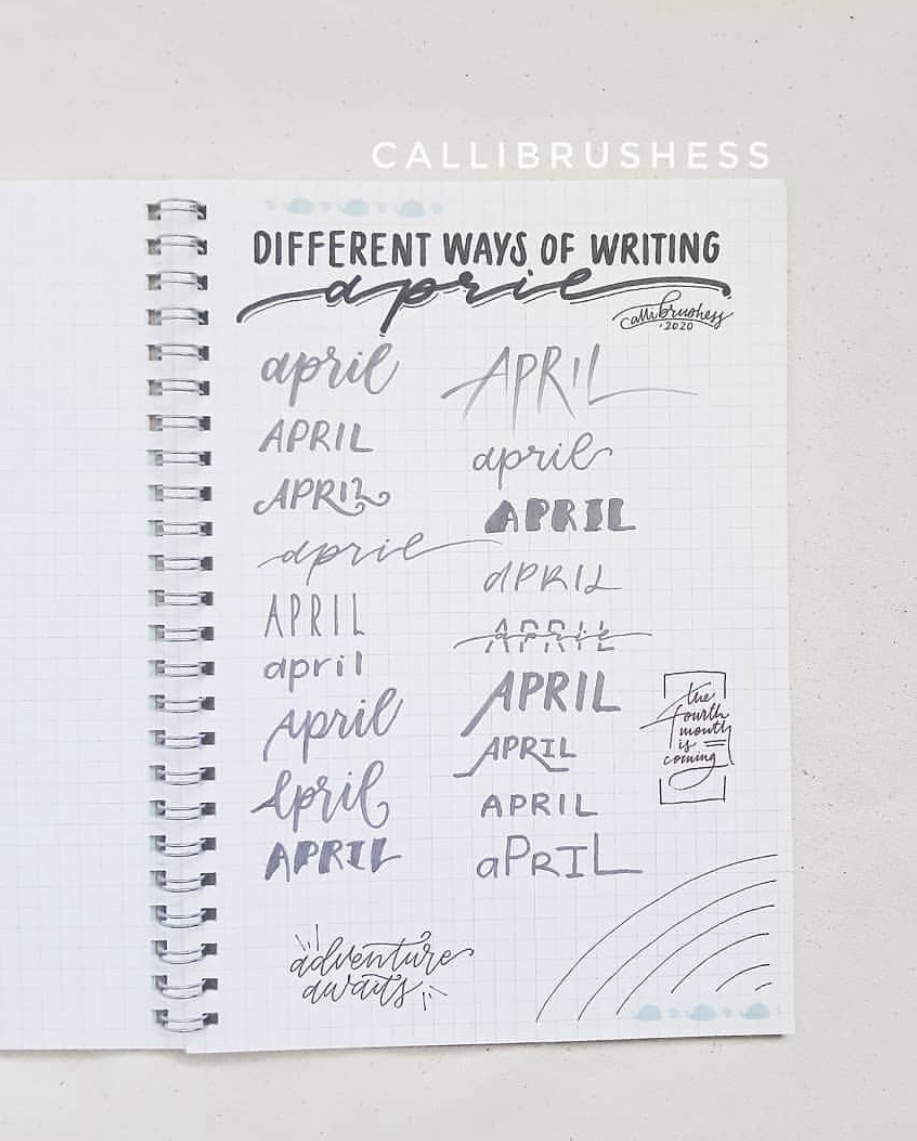 CALLIBRUSHESS
DIFFERENT WAYS OF WRITING
april
callibrushess
·2020
april
APRIL
APRIL
april
APRIL
april
April
April
APRIL
APRIL
april
APRIL
aPRIL
APRIL
APRIL
APRIL
APRIL
aPRIL
the
fourth
month
is
coming
adventure
awaits